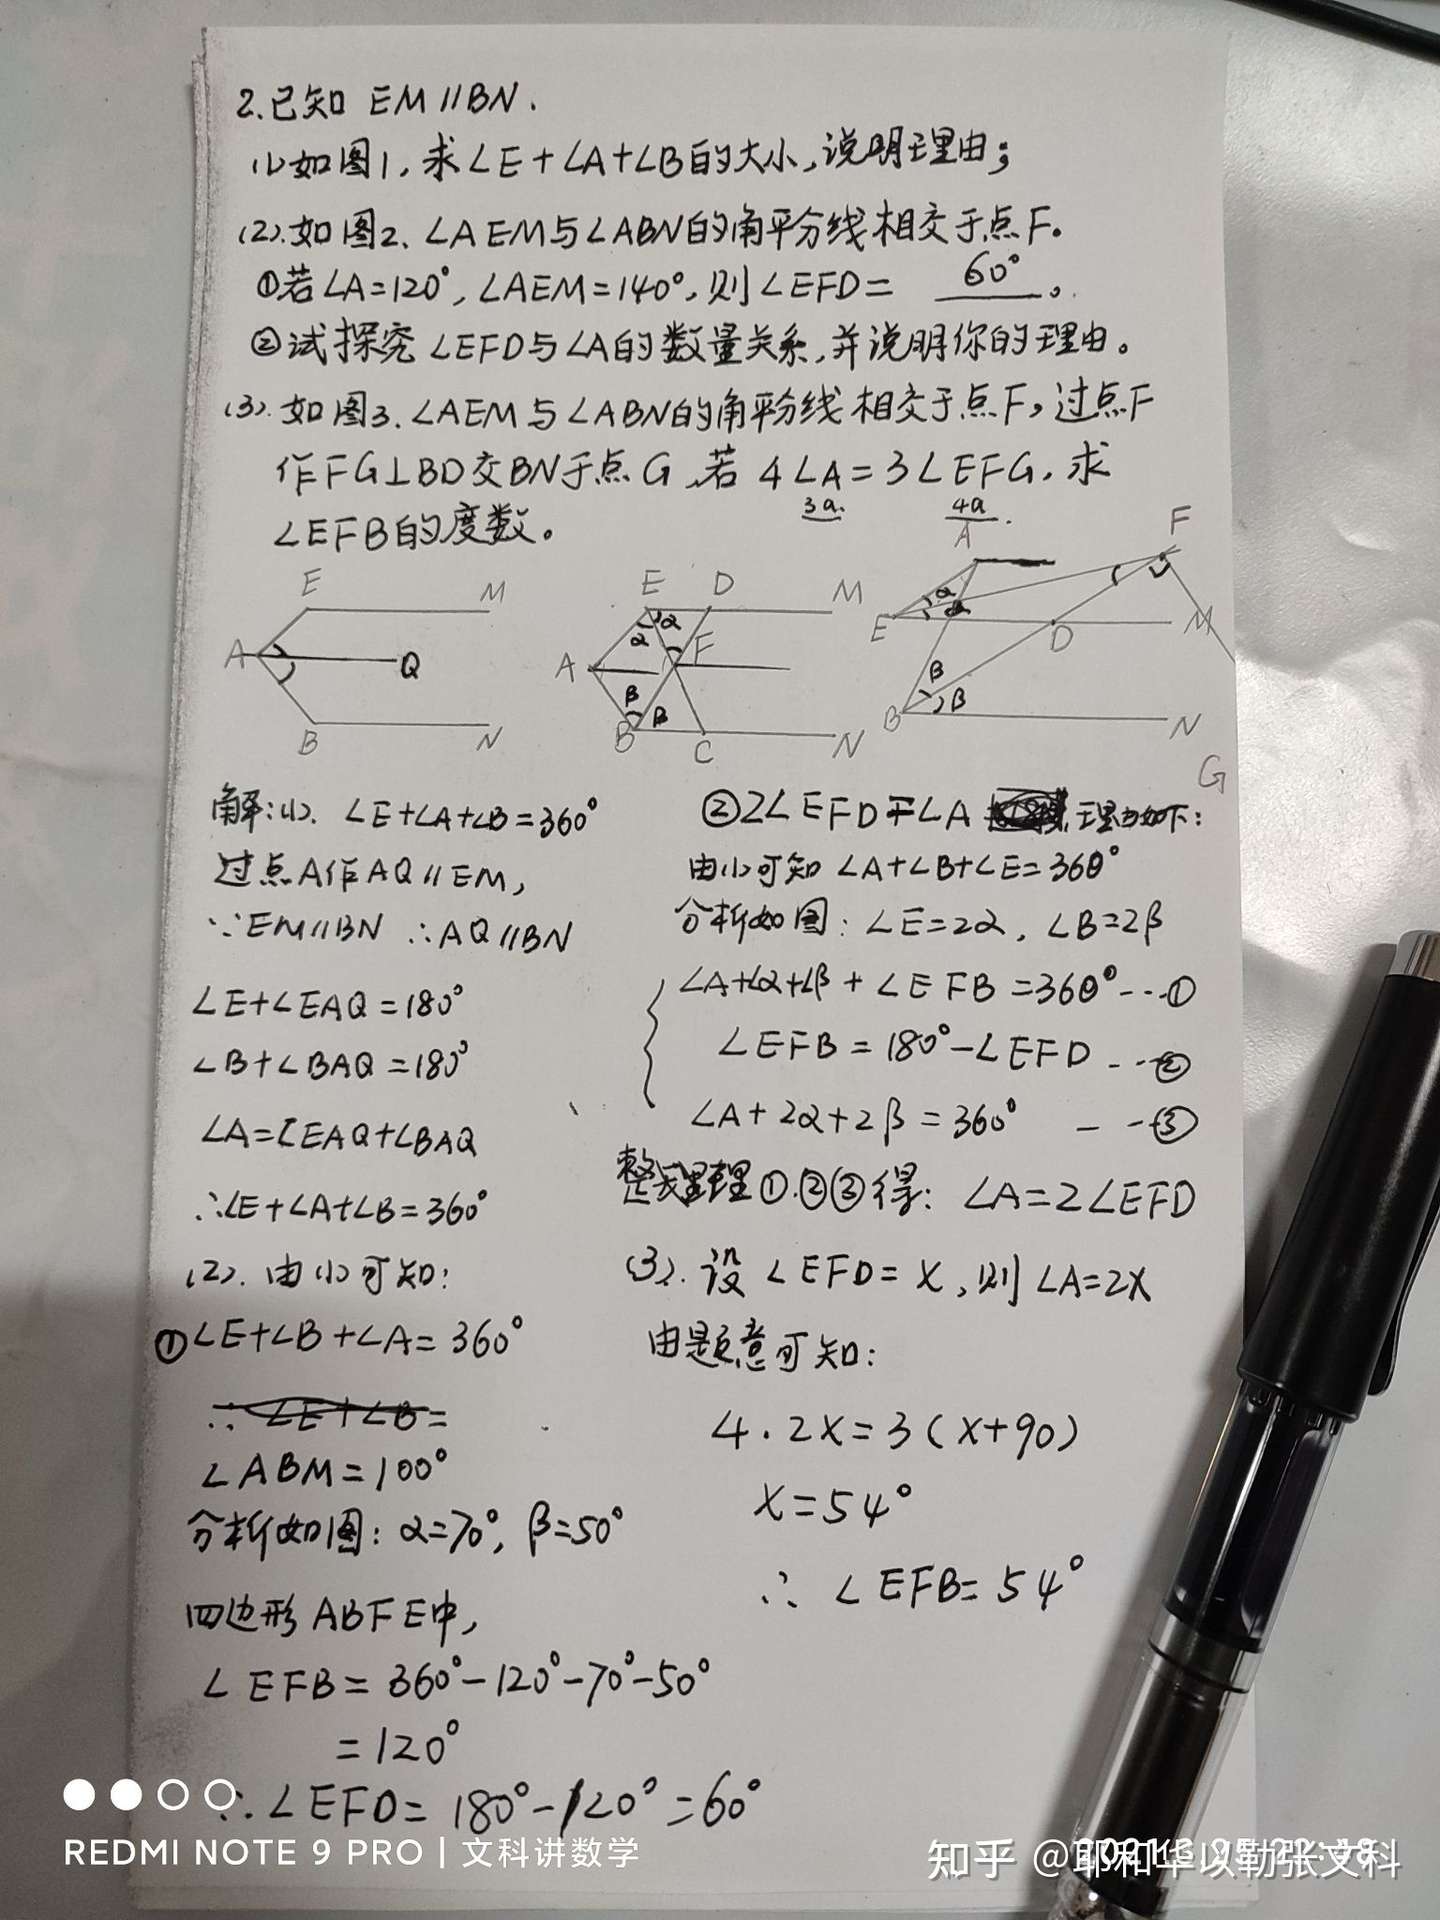 2.已知 EM//BN.
(1)如图1,求∠E+∠A+∠B的大小,说明理由;
(2).如图2、∠AEM与∠ABN的角平分线相交于点F。
①若∠A=120°,∠AEM=140°,则∠EFD= 60° 。
②试探究∠EFD与∠A的数量关系,并说明你的理由。
(3).如图3.∠AEM与∠ABN的角平分线相交于点F,过点F
作FG⊥BD交BN于点G,若 4∠A=3∠EFG.求
3a. 4a
∠EFB的度数。
E M
A Q
B N
E D M
α α
A F
β β
B C N
A F
α α
E D M
β β
B N
G
解:(1). ∠E+∠A+∠B=360°
过点A作AQ//EM,
∵EM//BN ∴AQ//BN
∠E+∠EAQ=180°
∠B+∠BAQ=180°
∠A=∠EAQ+∠BAQ
∴∠E+∠A+∠B=360°
(2). 由(1)可知:
①∠E+∠B+∠A=360°
∴ ∠E+∠B=
∠ABM=100°
分析如图:α=70°,β=50°
四边形ABFE中,
∠EFB=360°-120°-70°-50°
=120°
∴∠EFD=180°-120°=60°
②2∠EFD=∠A 理由如下:
由(1)可知∠A+∠B+∠E=360°
分析如图:∠E=2α,∠B=2β
∠A+∠α+∠β+∠EFB=360°---①
∠EFB=180°-∠EFD---②
∠A+2α+2β=360° ---③
整理①.②③得:∠A=2∠EFD
(3).设∠EFD=x,则∠A=2x
由题意可知:
4·2x=3(x+90)
x=54°
∴ ∠EFB=54°
REDMI NOTE 9 PRO | 文科讲数学
知乎 @耶和华以勒张文科